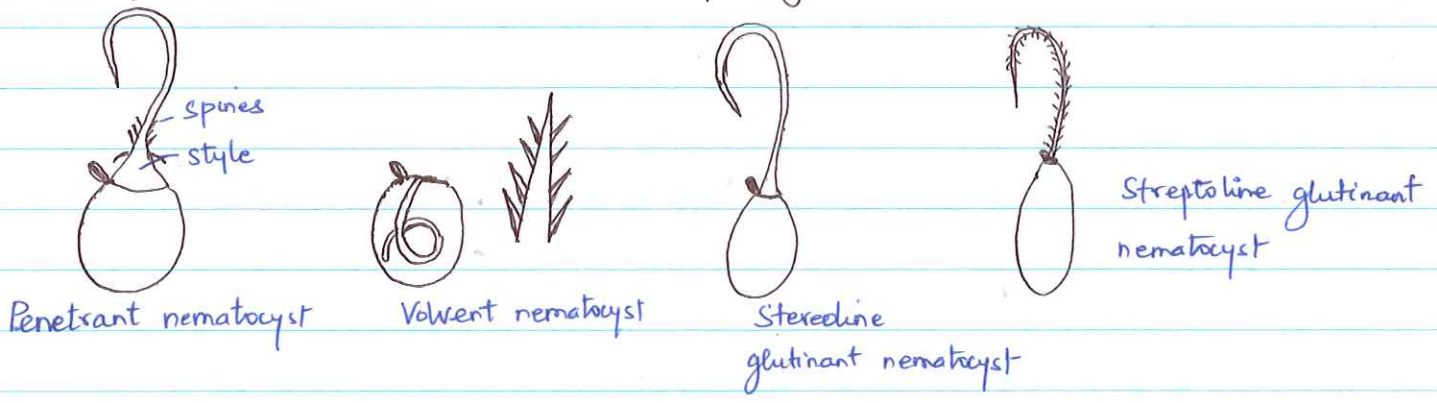 spines
style
Penetrant nematocyst
Volvent nematocyst
Stereoline
glutinant nematocyst
Streptoline glutinant
nematocyst